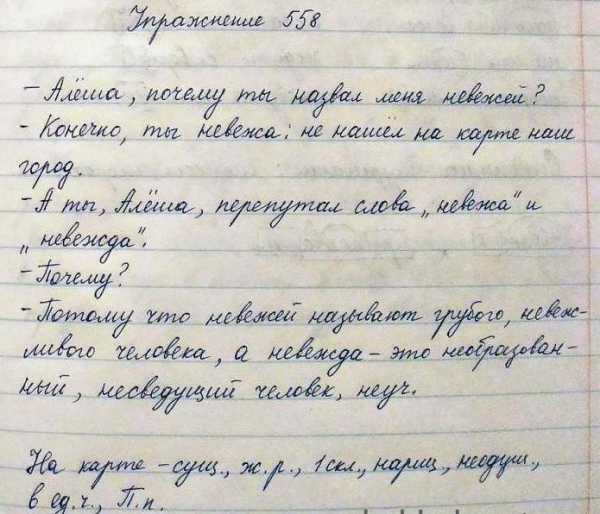 Упражнение 558
- Алёша, почему ты назвал меня невежей?
- Конечно, ты невежа: не нашёл на карте наш
город.
- А ты, Алёша, перепутал слова „невежа" и
„невежда".
- Почему?
- Потому что невежей называют грубого, невеж-
ливого человека, а невежда - это необразован-
ный, несведущий человек, неуч.
На карте - сущ., ж.р., 1 скл., нариц., неодуш.,
в ед.ч., П.п.